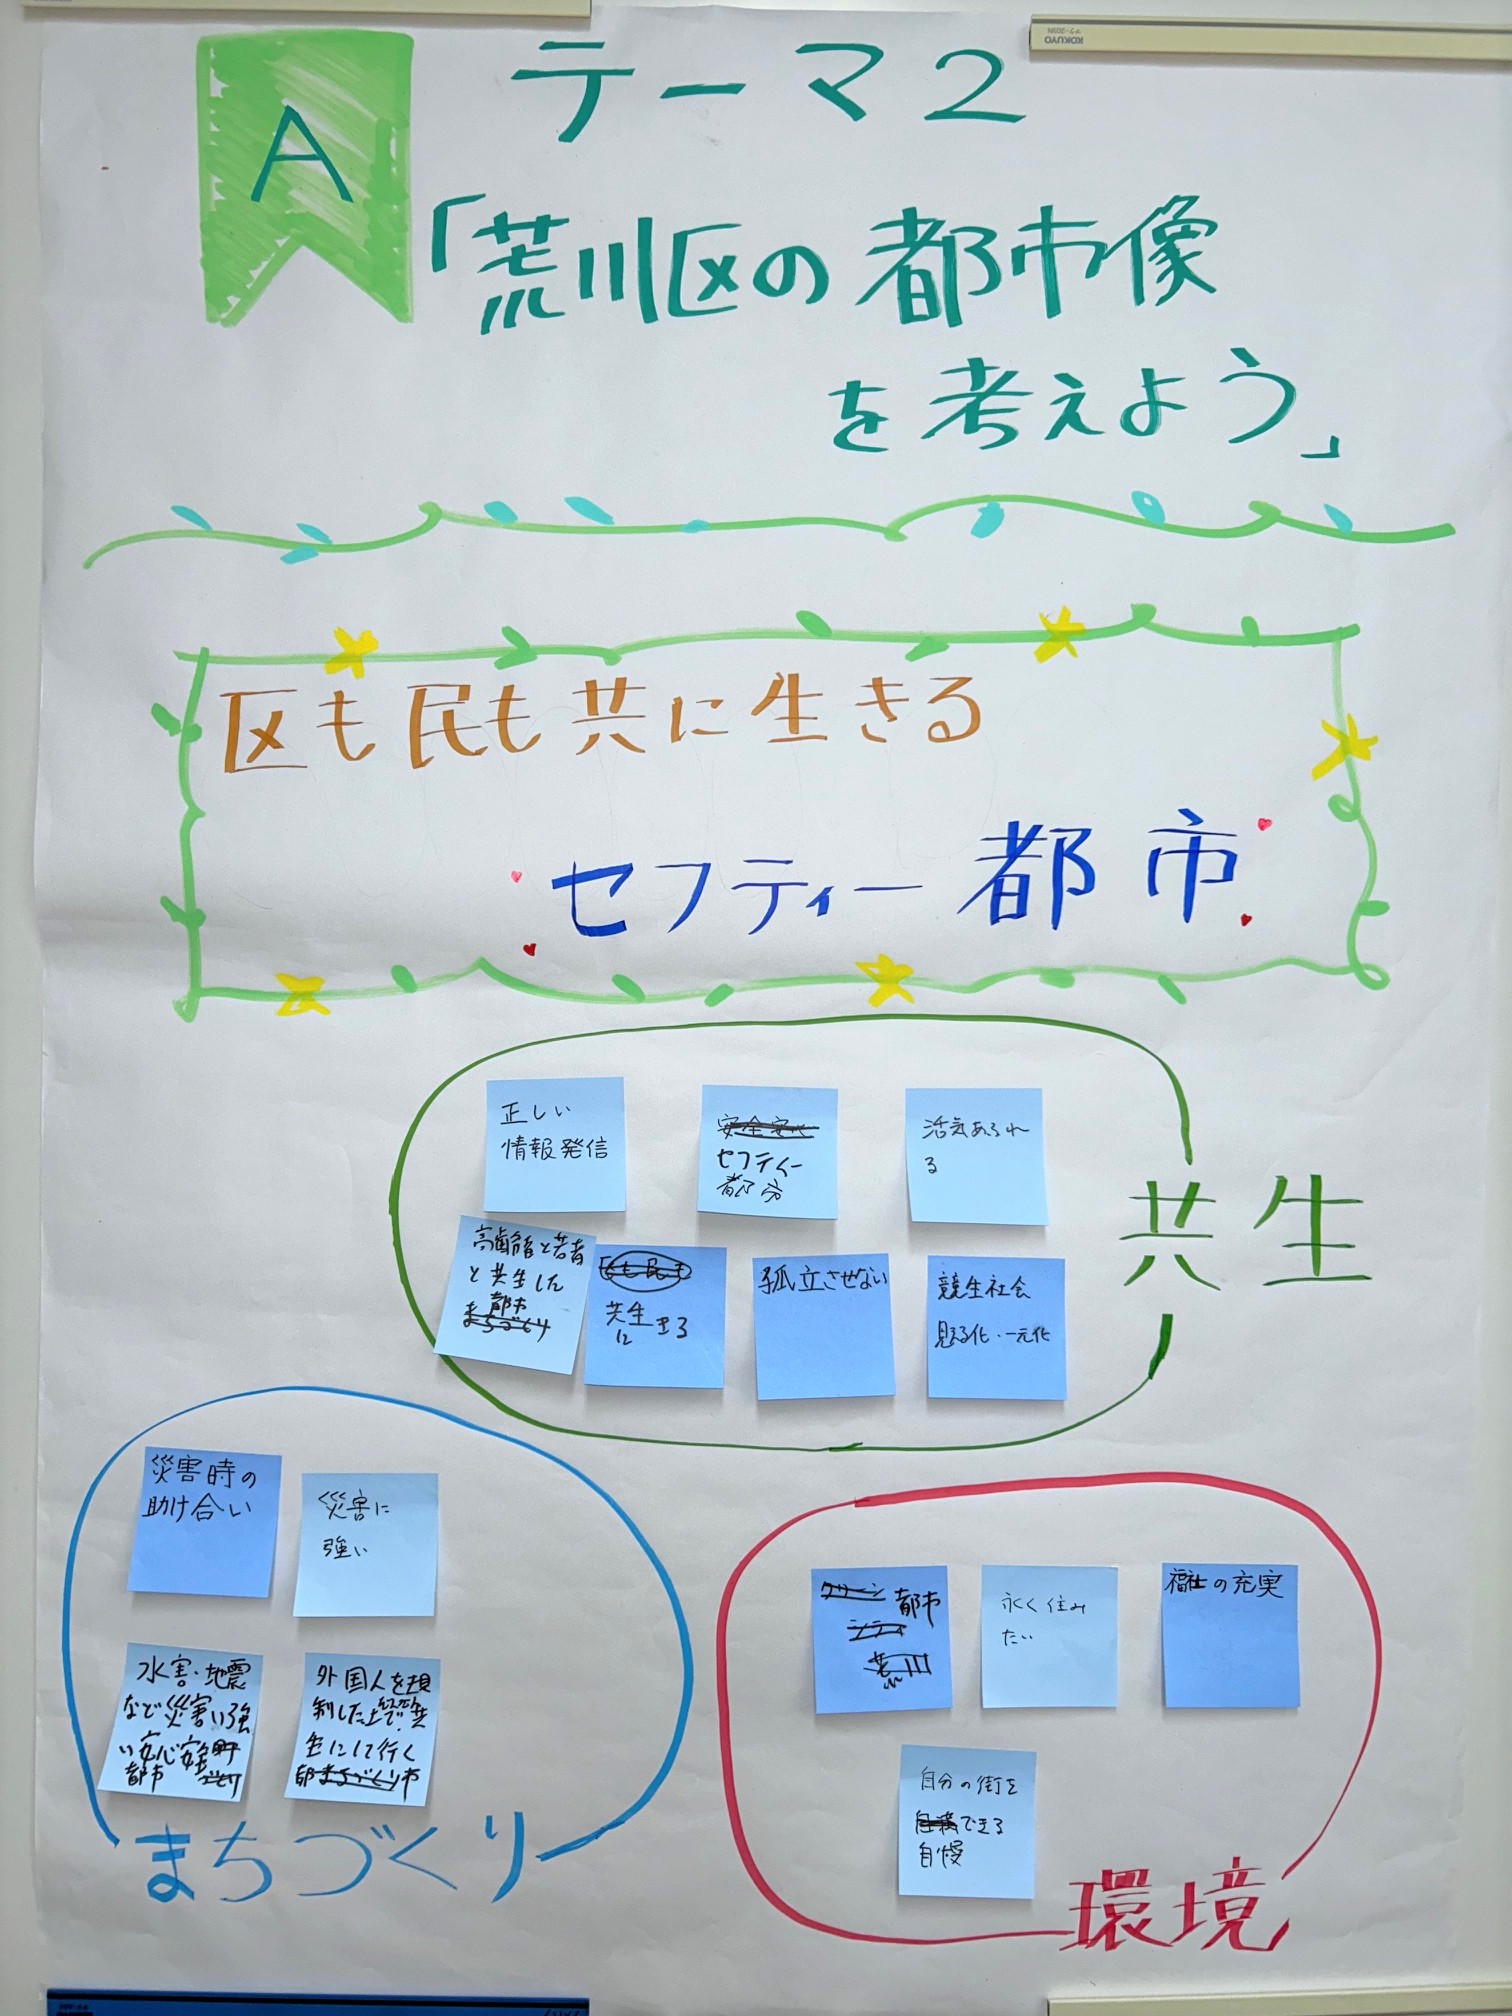 A
テーマ2
「荒川区の都市像
を考えよう」
区も民も共に生きる
セフティー都市
正しい
情報発信
安全安心
セフティー
都市
活気あふれ
る
高齢者と若者
と共生した
都市
まちづくり
区も民も
共生
に きる
孤立させない
競生社会
見える化・一元化
共生
災害時の
助け合い
災害に
強い
水害・地震
など災害に強
い安心安全町
都市 づくり
外国人を規
制した上で、共
生にして行く
都まちづくり市
まちづくり
グリーン 都市
シティ
荒川
永く住み
たい
福祉の充実
自分の街を
できる
自慢
環境
KOKUYO